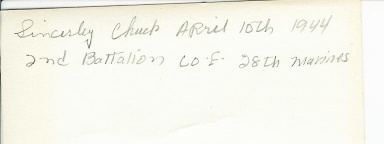 Sincerley Chuck April 10th 1944
2nd Battalion Co. F. 28th Marines